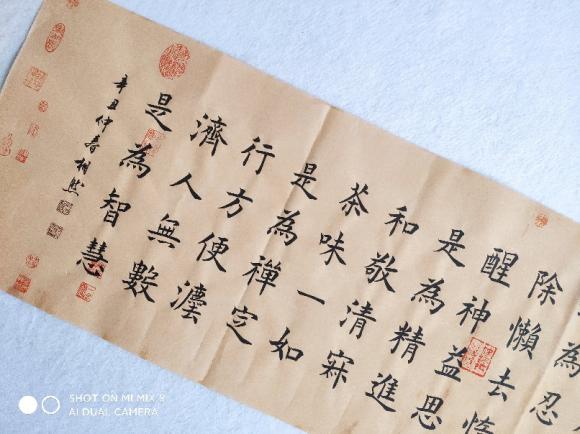 為忍
除懶去
醒神益思
是為精進
和敬清寂
茶味一如
是為禪定
行方便灋
濟人無數
是為智慧
辛丑仲春
SHOT ON MI MIX 3
AI DUAL CAMERA